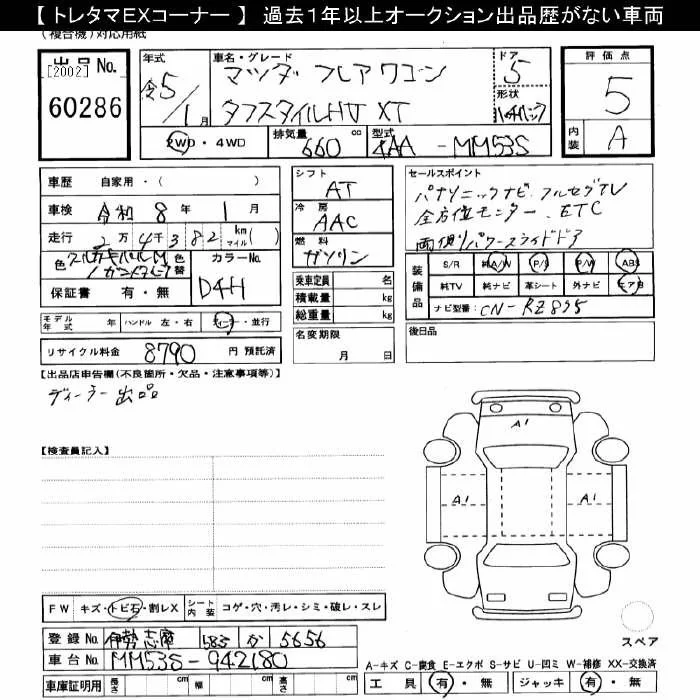 【トレタマEXコーナー】 過去１年以上オークション出品歴がない車両
(複合機)対応用紙
出品No.
[2002]
60286
年式
令5/1月
車名・グレード
マツダ フレアワゴン
タフスタイルHV XT
ドア
5
形状
ハッチバック
評価点
5
内装
A
2WD・4WD
排気量
660 cc
型式
4AA-MM53S
車歴 自家用・( )
車検 令和 8年 1月
走行 2万4千382 km マイル( )
色
色替
カラーNo.
D4H
保証書 有・無
シフト
AT
冷房
AAC
燃料
ガソリン
乗車定員 名
積載量 kg
総重量 kg
セールスポイント
パナソニックナビ、フルセグTV
全方位モニター、ETC
両側パワースライドドア
装備品
S/R 純A/W P/S P/W ABS
純TV 純ナビ 革シート 外ナビ エアB
ナビ型番: CN-RZ895
モデル年式 年 ハンドル 左・右 ディーラー・並行
リサイクル料金 8790 円 預託済
名変期限
月 日
後日品
【出品店申告欄(不良箇所・欠品・注意事項等)】
ディーラー出品
【検査員記入】
A1
A1
A1
FW キズ・トビ石・割レX シート内装 コゲ・穴・汚レ・シミ・破レ・スレ
スペア
登録No. 伊勢志摩 585 か 5656
車台No. MM53S-942180
車庫証明用 長さ cm 幅 cm 高さ cm
A-キズ C-腐食 E-エクボ S-サビ U-凹ミ W-補修 XX-交換済
工具 有・無 ジャッキ 有・無